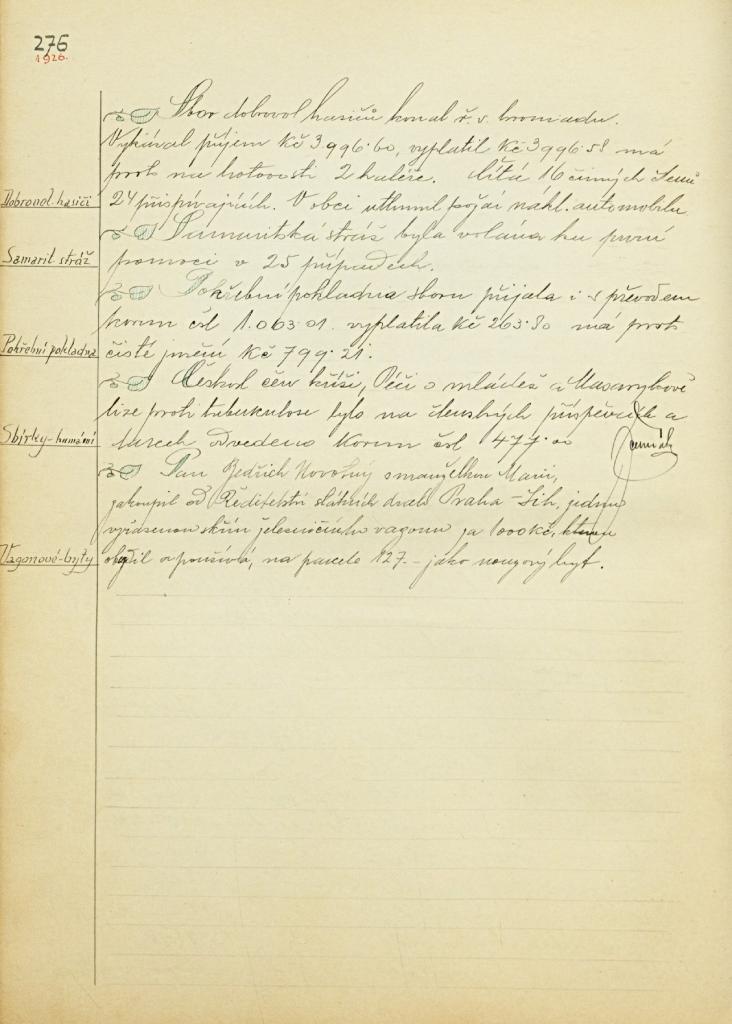 276
1926.
Sbor dobrovol. hasičů konal ř. v. hromadu.
Vykázal příjem Kč 3996.60, vyplatil Kč 3996.58 má
proto na hotovosti 2 haléře. čítá 16 činných členů
Dobrovol. hasiči
24 přispívajících. V obci utlumil požár nákl. automobilu
Samaritská stráž byla volána ku první
Samarit. stráž
pomoci v 25 případech.
Pohřební pokladna sboru přijala i s převodem
korun čsl 1.063.01. vyplatila Kč 263.80 má proto
Pohřební pokladna
čisté jmění Kč 799.21.
Českosl. čer. kříži, Péči o mládež a Masarykově
lize proti tuberkulose bylo na členských příspěvcích a
Sbírky-humánní
odvedeno korun čsl 477.00
Pan Bedřich Novotný s manželkou Marií,
zakoupil od Ředitelství státních drah Praha-Jih, jednu
vyřazenou skříň železničního vagonu za 1000 Kč, kterou
Vagonové-byty
obydlil a používá, na parcele 127.- jako nouzový byt.